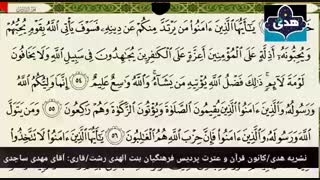 هدی
يَٰٓأَيُّهَا ٱلَّذِينَ ءَامَنُوا۟ مَن يَرْتَدَّ مِنكُمْ عَن دِينِهِۦ فَسَوْفَ يَأْتِى ٱللَّهُ بِقَوْمٍ يُحِبُّهُمْ
وَيُحِبُّونَهُۥٓ أَذِلَّةٍ عَلَى ٱلْمُؤْمِنِينَ أَعِزَّةٍ عَلَى ٱلْكَٰفِرِينَ يُجَٰهِدُونَ فِى سَبِيلِ ٱللَّهِ وَلَا يَخَافُونَ
لَوْمَةَ لَآئِمٍ ۚ ذَٰلِكَ فَضْلُ ٱللَّهِ يُؤْتِيهِ مَن يَشَآءُ ۚ وَٱللَّهُ وَٰسِعٌ عَلِيمٌ ٥٤ إِنَّمَا وَلِيُّكُمُ ٱللَّهُ
وَرَسُولُهُۥ وَٱلَّذِينَ ءَامَنُوا۟ ٱلَّذِينَ يُقِيمُونَ ٱلصَّلَوٰةَ وَيُؤْتُونَ ٱلزَّكَوٰةَ وَهُمْ رَٰكِعُونَ ٥٥ وَمَن يَتَوَلَّ
ٱللَّهَ وَرَسُولَهُۥ وَٱلَّذِينَ ءَامَنُوا۟ فَإِنَّ حِزْبَ ٱللَّهِ هُمُ ٱلْغَٰلِبُونَ ٥٦ يَٰٓأَيُّهَا ٱلَّذِينَ ءَامَنُوا۟ لَا تَتَّخِذُوا۟
نشریه هدی/کانون قرآن و عترت پردیس فرهنگیان بنت الهدی رشت/قاری: آقای مهدی ساجدی